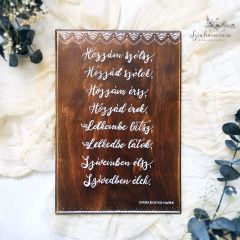 Színharmónia
Hozzám szólsz,
Hozzád szólok.
Hozzám érsz,
Hozzád érek.
Lelkembe látsz,
Lelkedbe látok,
Szívemben élsz,
Szívedben élek.